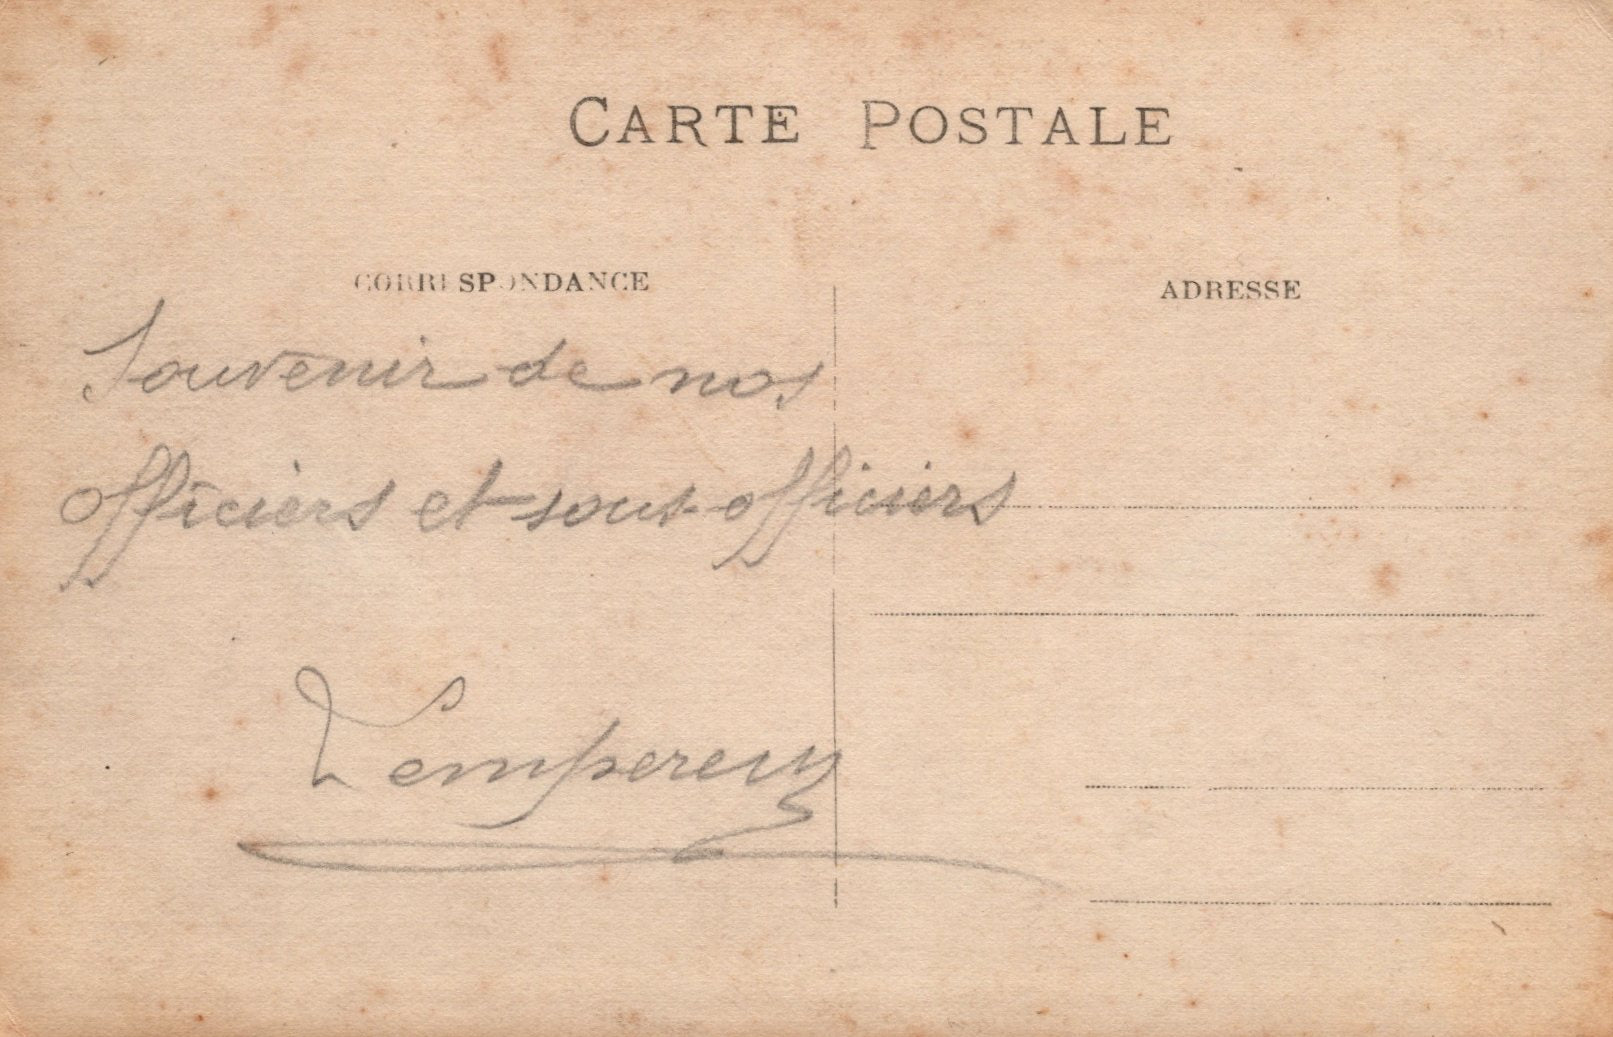 CARTE POSTALE
CORRESPONDANCE
ADRESSE
Souvenir de nos
officiers et sous-officiers
Lempereur